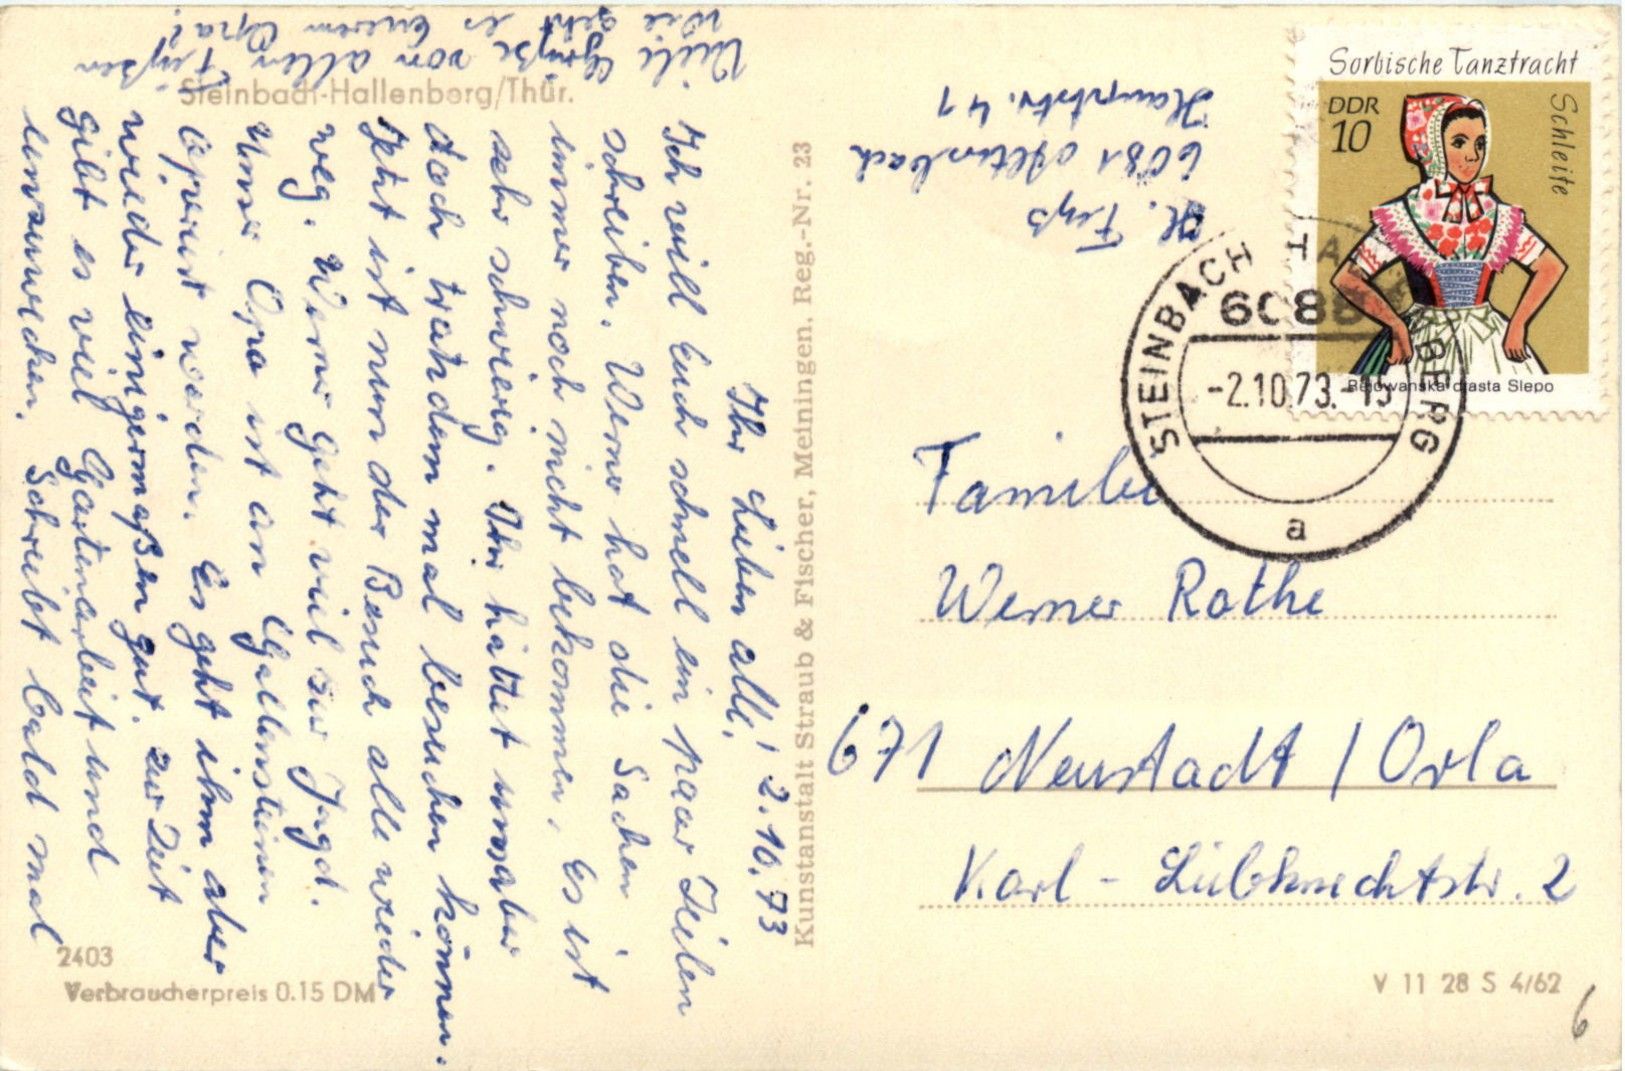 Steinbach-Hallenberg/Thür.
Ihr Lieben alle! 2.10.73
Ich will Euch schnell ein paar Zeilen
schreiben. Werner hat die Sachen
immer noch nicht bekommen, Es ist
sehr schwierig. Ihr hättet uns aber
doch trotzdem mal besuchen können.
Jetzt ist nun der Besuch alle wieder
weg. Werner geht viel zur Jagd.
Unser Opa ist an Gallensteinen
operiert worden. Es geht ihm aber
wieder einigermaßen gut. Zur Zeit
gibt es viel Gartenarbeit und
einzuwecken. Schreibt bald mal
Viele Grüße von allen
wie geht es Eurem Opa?
Kunstanstalt Straub & Fischer, Meiningen, Reg.-Nr. 23
2403
Verbraucherpreis 0.15 DM
H.
6081 Altersbach
Hauptstr. 41
Sorbische Tanztracht
Schleife
DDR
10
Rejowanska drasta Slepo
STEINBACH HALLENBERG
6088
-2.10.73.-15
a
Familie
Werner Rothe
671 Neustadt / Orla
Karl-Liebknechtstr. 2
V 11 28 S 4/62
6